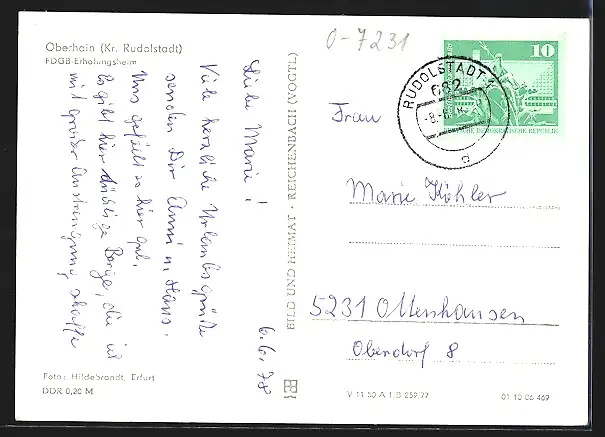 Oberhain (Kr. Rudolstadt)
FDGB-Erholungsheim
0-7231
10
DEUTSCHE DEMOKRATISCHE REPUBLIK
RUDOLSTADT 1
682
6.6.78
Liebe Marie!
Viele herzliche Urlaubsgrüße
senden Dir Anni u. Hans.
Uns gefällt es hier gut.
Es gibt hier Berge, die ich
mit großer Anstrengung schaffe
BILD UND HEIMAT · REICHENBACH (VOGTL)
Frau
Marie Köhler
5231 Ollenshausen
Oberdorf 8
Foto: Hildebrandt, Erfurt
DDR 0,20 M
V 11 50 A 1,B 259/77
01 10 06 469